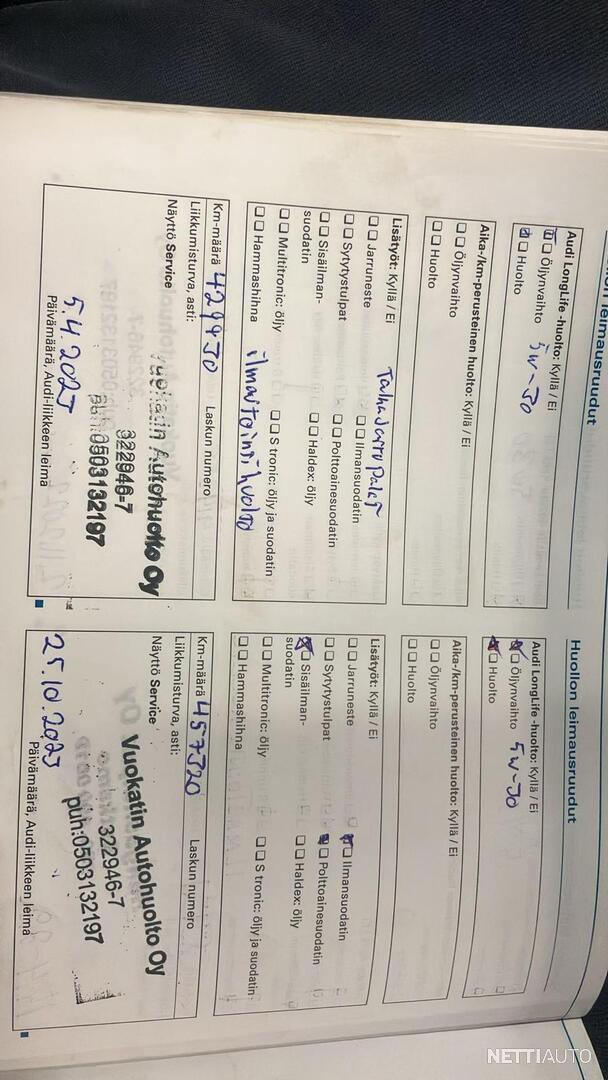 Huollon leimausruudut
Audi LongLife -huolto: Kyllä / Ei
Öljynvaihto 5w-30
Huolto
Aika-/km-perusteinen huolto: Kyllä / Ei
Öljynvaihto
Huolto
Lisätyöt: Kyllä / Ei
Jarruneste
Ilmansuodatin
Sytytystulpat
Polttoainesuodatin
Sisäilman-
suodatin
Haldex: öljy
Multitronic: öljy
S tronic: öljy ja suodatin
Hammashihna
Km-määrä
Laskun numero
Liikkumisturva, asti:
Näyttö Service
Vuokatin Autohuolto Oy
322946-7
puh:0503132197
5.4.2025
Päivämäärä, Audi-liikkeen leima
Huollon leimausruudut
Audi LongLife -huolto: Kyllä / Ei
Öljynvaihto 5w-30
Huolto
Aika-/km-perusteinen huolto: Kyllä / Ei
Öljynvaihto
Huolto
Lisätyöt: Kyllä / Ei
Jarruneste
Ilmansuodatin
Sytytystulpat
Polttoainesuodatin
Sisäilman-
suodatin
Haldex: öljy
Multitronic: öljy
S tronic: öljy ja suodatin
Hammashihna
Km-määrä 457320
Laskun numero
Liikkumisturva, asti:
Näyttö Service
Vuokatin Autohuolto Oy
322946-7
puh:0503132197
25.10.2025
Päivämäärä, Audi-liikkeen leima
NETTIAUTO